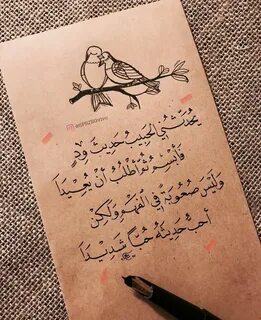 يحدثني الحبيب حديث ود
فأبسم ثم أطلب أن يعيدا
وليس صعوبة في الفهم ولكن
أحب حديثه حبا شديدا